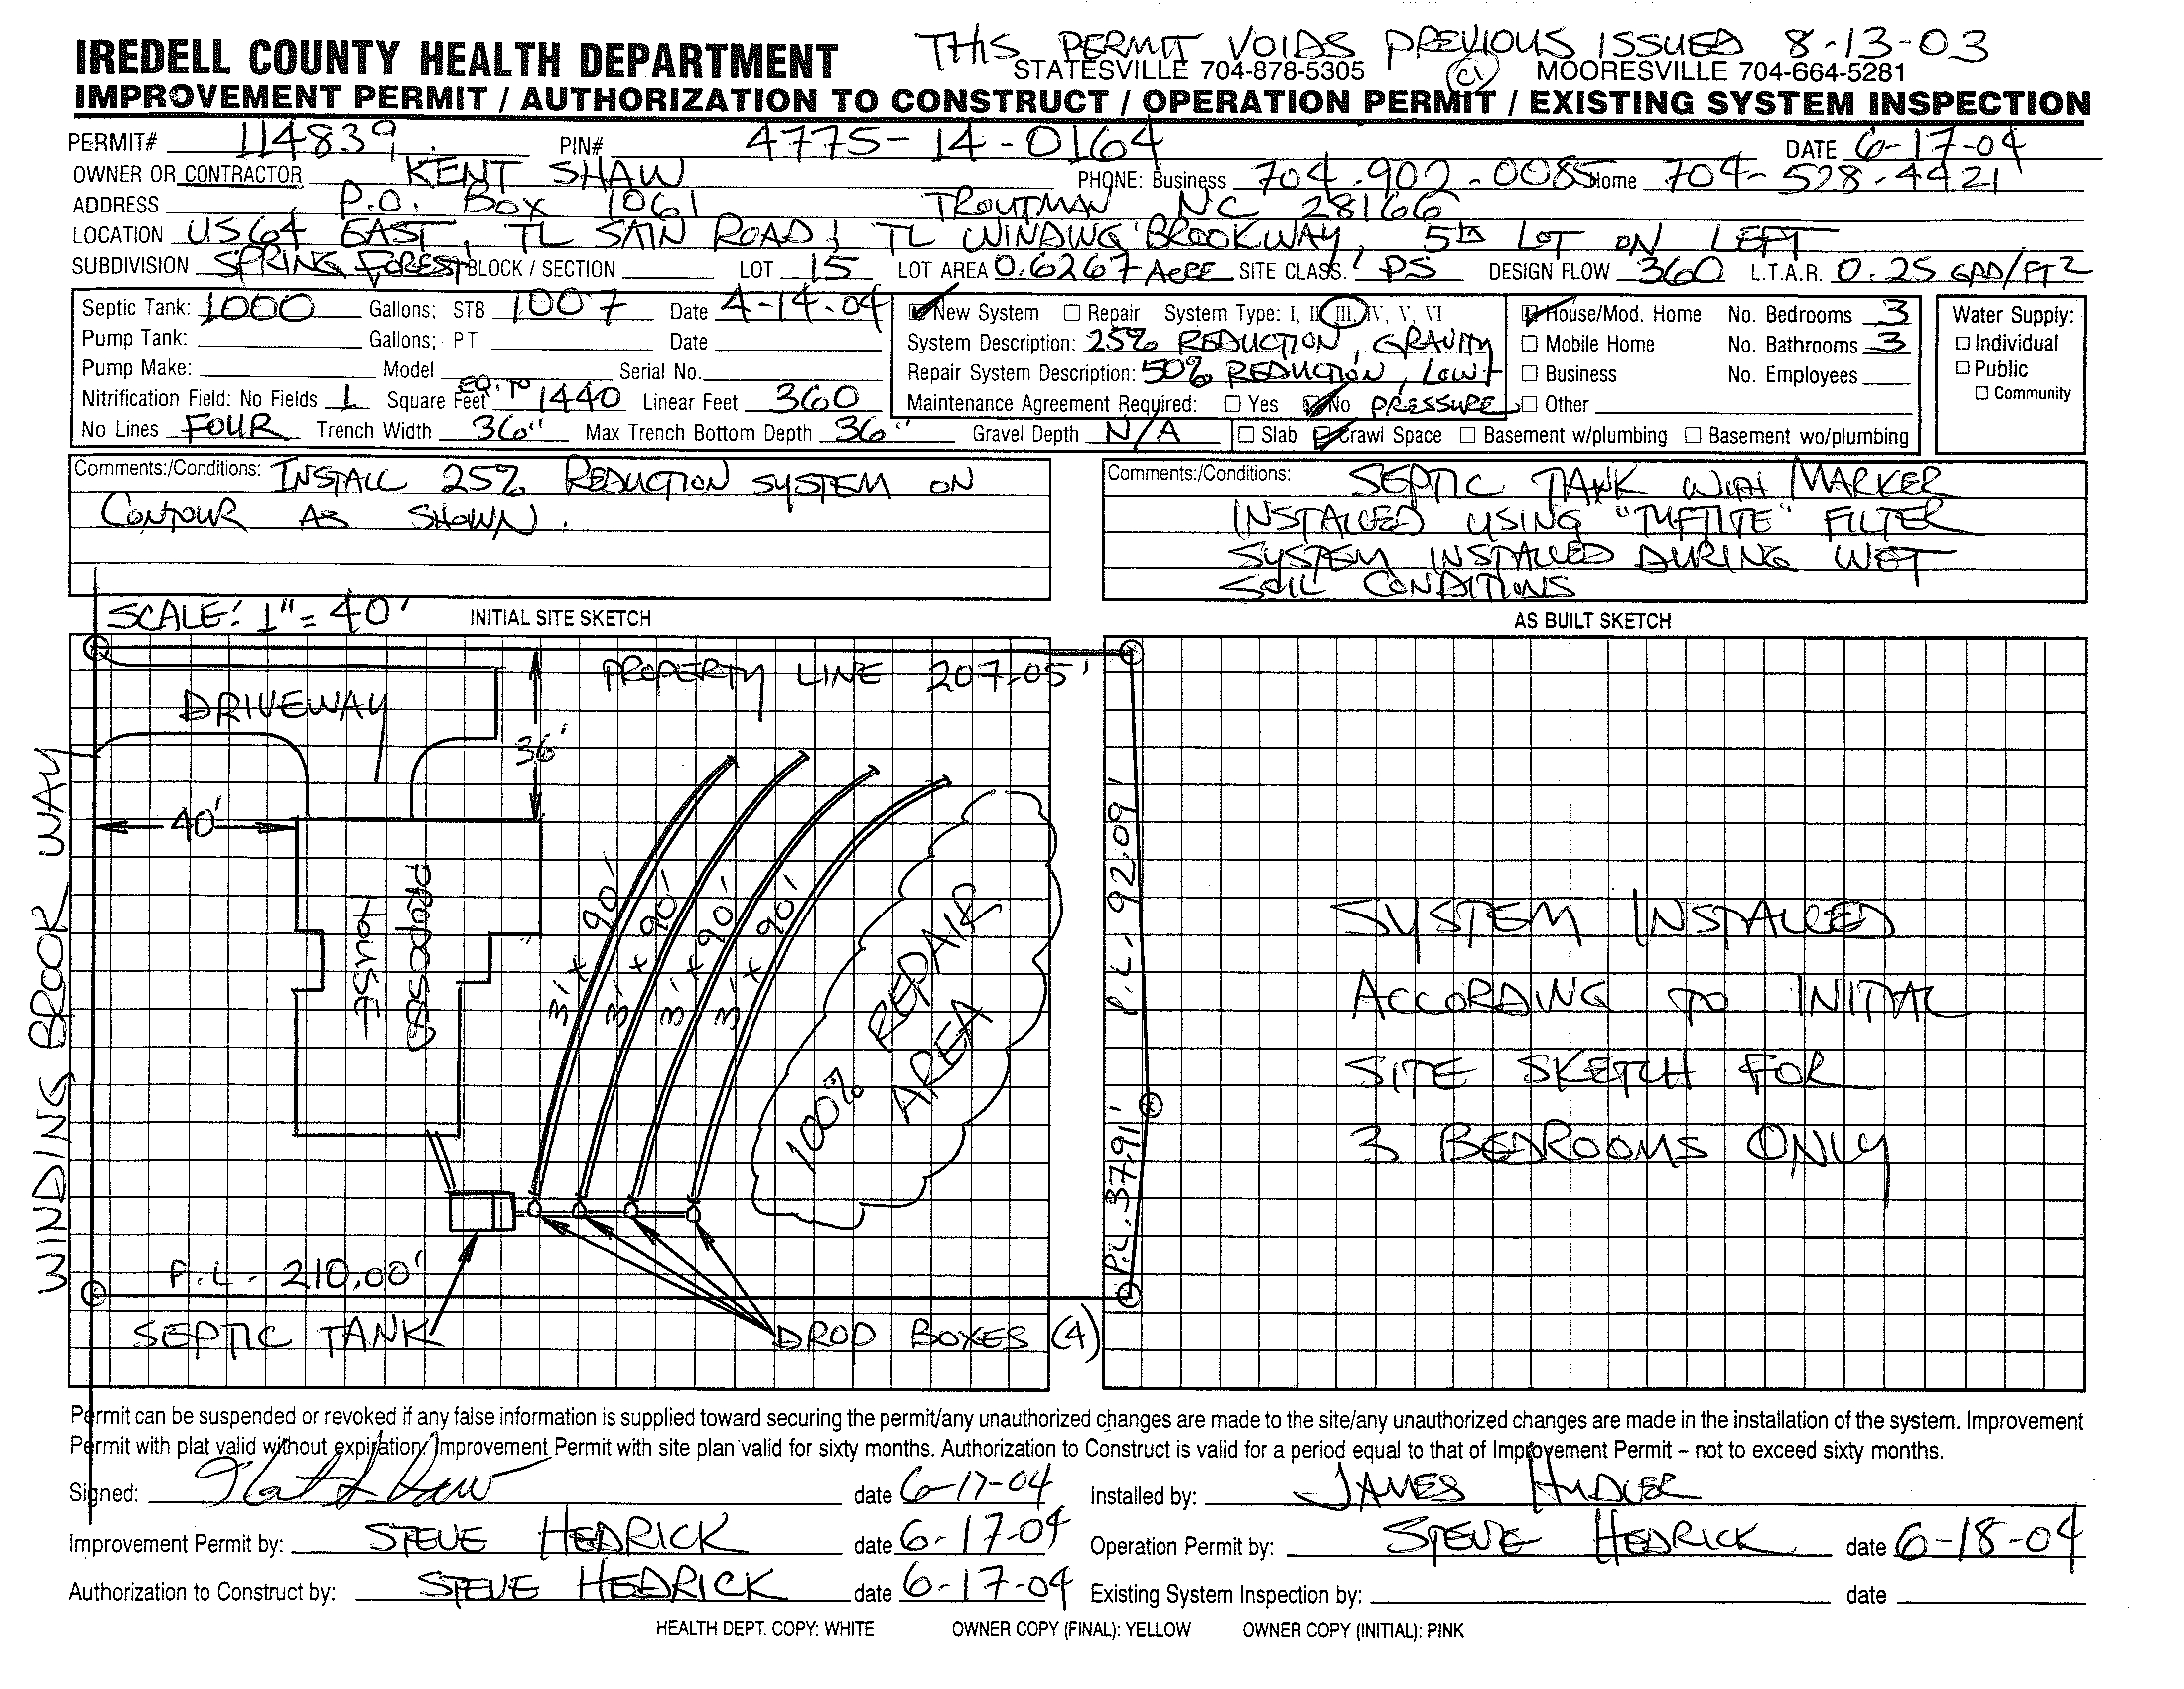 THIS PERMIT VOIDS PREVIOUS ISSUED 8-13-03
IREDELL COUNTY HEALTH DEPARTMENT STATESVILLE 704-878-5305 MOORESVILLE 704-664-5281
IMPROVEMENT PERMIT / AUTHORIZATION TO CONSTRUCT / OPERATION PERMIT / EXISTING SYSTEM INSPECTION
PERMIT# 114839 PIN# 4775-14-0164 DATE 6-17-04
OWNER OR CONTRACTOR KENT SHAW PHONE: Business 704-902-0085 Home 704-528-4421
ADDRESS P.O. BOX 1061 TROUTMAN NC 28166
LOCATION US 64 EAST, TL SAIN ROAD; TL WINDING BROOK WAY, 5th LOT ON LEFT
SUBDIVISION SPRING FOREST BLOCK / SECTION LOT 15 LOT AREA 0.6267 ACRE SITE CLASS. PS DESIGN FLOW 360 L.T.A.R. 0.25 GPD/FT2
Septic Tank: 1000 Gallons; STB 1007 Date 4-14-04
Pump Tank: Gallons; PT Date
Pump Make: Model Serial No.
Nitrification Field: No Fields 1 Square Feet EQ. TO 1440 Linear Feet 360
No Lines FOUR Trench Width 36" Max Trench Bottom Depth 36" Gravel Depth N/A
New System Repair System Type: I, II, III, IV, V, VI
System Description: 25% REDUCTION, GRAVITY
Repair System Description: 50% REDUCTION, LOW
Maintenance Agreement Required: Yes No PRESSURE
House/Mod. Home No. Bedrooms 3
Mobile Home No. Bathrooms 3
Business No. Employees
Other
Slab Crawl Space Basement w/plumbing Basement wo/plumbing
Water Supply:
Individual
Public
Community
Comments:/Conditions: INSTALL 25% REDUCTION SYSTEM ON
CONTOUR AS SHOWN.
Comments:/Conditions: SEPTIC TANK WITH MARKER
INSTALLED USING "TUFTITE" FILTER
SYSTEM INSTALLED DURING WET
SOIL CONDITIONS
SCALE: 1" = 40' INITIAL SITE SKETCH
PROPERTY LINE 207.05'
DRIVEWAY
36'
40'
WINDING BROOK WAY
PROPOSED
HOUSE
3' x 90'
3' x 90'
3' x 90'
3' x 90'
100% REPAIR
AREA
P.L. 92.09'
P.L. 37.91'
P.L. 210.00'
SEPTIC TANK
DROP BOXES (4)
AS BUILT SKETCH
SYSTEM INSTALLED
ACCORDING TO INITIAL
SITE SKETCH FOR
3 BEDROOMS ONLY
Permit can be suspended or revoked if any false information is supplied toward securing the permit/any unauthorized changes are made to the site/any unauthorized changes are made in the installation of the system. Improvement
Permit with plat valid without expiration/Improvement Permit with site plan valid for sixty months. Authorization to Construct is valid for a period equal to that of Improvement Permit – not to exceed sixty months.
Signed: date 6-17-04 Installed by: JAMES
Improvement Permit by: STEVE HEDRICK date 6-17-04 Operation Permit by: STEVE HEDRICK date 6-18-04
Authorization to Construct by: STEVE HEDRICK date 6-17-04 Existing System Inspection by: date
HEALTH DEPT. COPY: WHITE OWNER COPY (FINAL): YELLOW OWNER COPY (INITIAL): PINK